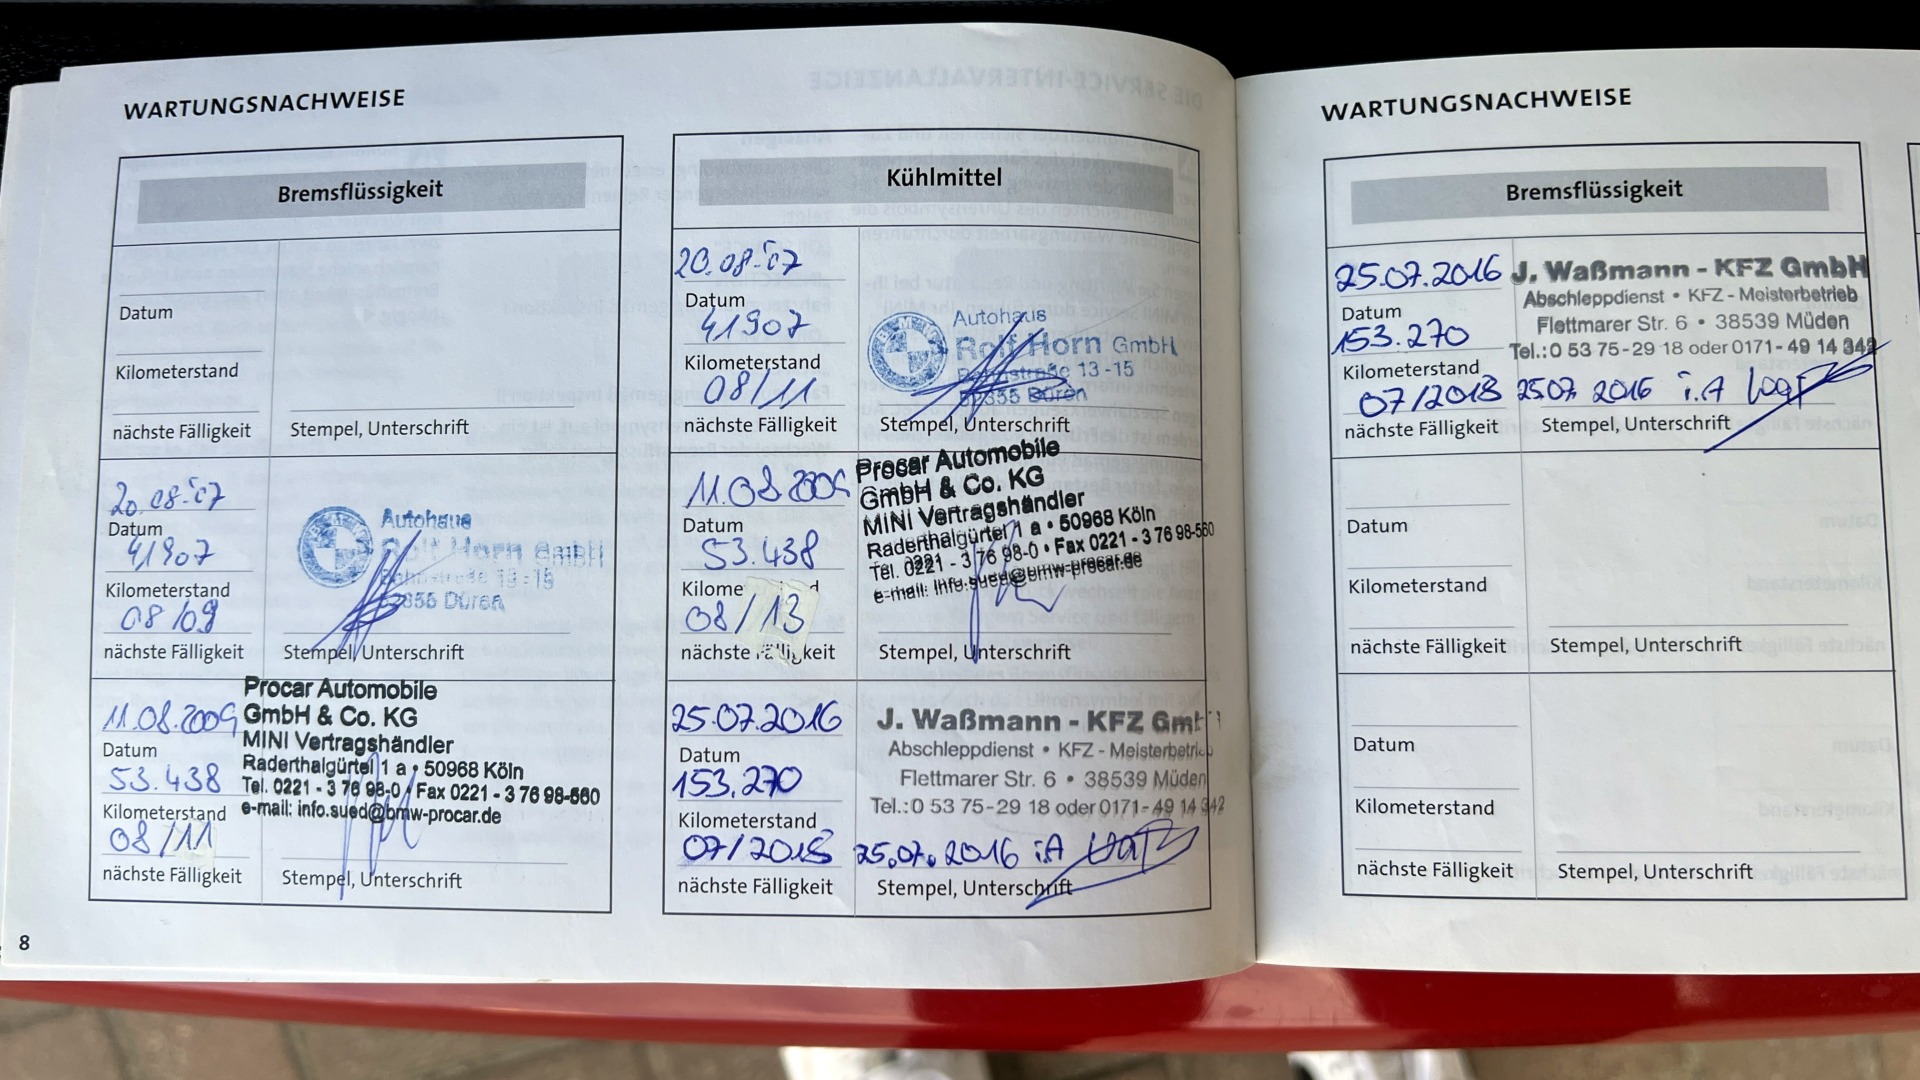 WARTUNGSNACHWEISE
Bremsflüssigkeit
Datum
Kilometerstand
nächste Fälligkeit
Stempel, Unterschrift
20.08.07
Datum
41907
Kilometerstand
08/09
nächste Fälligkeit
Autohaus
Rolf Horn GmbH
Bahnstraße 13-15
52355 Düren
Stempel, Unterschrift
11.08.2009
Datum
53.438
Kilometerstand
08/11
nächste Fälligkeit
Procar Automobile
GmbH & Co. KG
MINI Vertragshändler
Raderthalgürtel 1 a • 50968 Köln
Tel. 0221 - 3 76 98-0 • Fax 0221 - 3 76 98-560
e-mail: info.sued@bmw-procar.de
Stempel, Unterschrift
8
Kühlmittel
20.08.07
Datum
41907
Kilometerstand
08/11
nächste Fälligkeit
BMW
Autohaus
Rolf Horn GmbH
13-15
52355 Düren
Stempel, Unterschrift
11.08.2009
Datum
53.438
08/13
nächste Fälligkeit
Procar Automobile
GmbH & Co. KG
MINI Vertragshändler
Raderthalgürtel 1 a • 50968 Köln
Tel. 0221 - 3 76 98-0 • Fax 0221 - 3 76 98-560
e-mail: info.sued@bmw-procar.de
Stempel, Unterschrift
25.07.2016
Datum
153.270
Kilometerstand
07/2018
nächste Fälligkeit
J. Waßmann - KFZ GmbH
Abschleppdienst • KFZ - Meisterbetrieb
Flettmarer Str. 6 • 38539 Müden
Tel.: 0 53 75 - 29 18 oder 0171 - 49 14 342
25.07.2016 i.A
Stempel, Unterschrift
WARTUNGSNACHWEISE
Bremsflüssigkeit
25.07.2016
Datum
153.270
Kilometerstand
07/2018
nächste Fälligkeit
J. Waßmann - KFZ GmbH
Abschleppdienst • KFZ - Meisterbetrieb
Flettmarer Str. 6 • 38539 Müden
Tel.: 0 53 75 - 29 18 oder 0171 - 49 14 342
25.07 2016 i.A
Stempel, Unterschrift
Datum
Kilometerstand
nächste Fälligkeit
Stempel, Unterschrift
Datum
Kilometerstand
nächste Fälligkeit
Stempel, Unterschrift